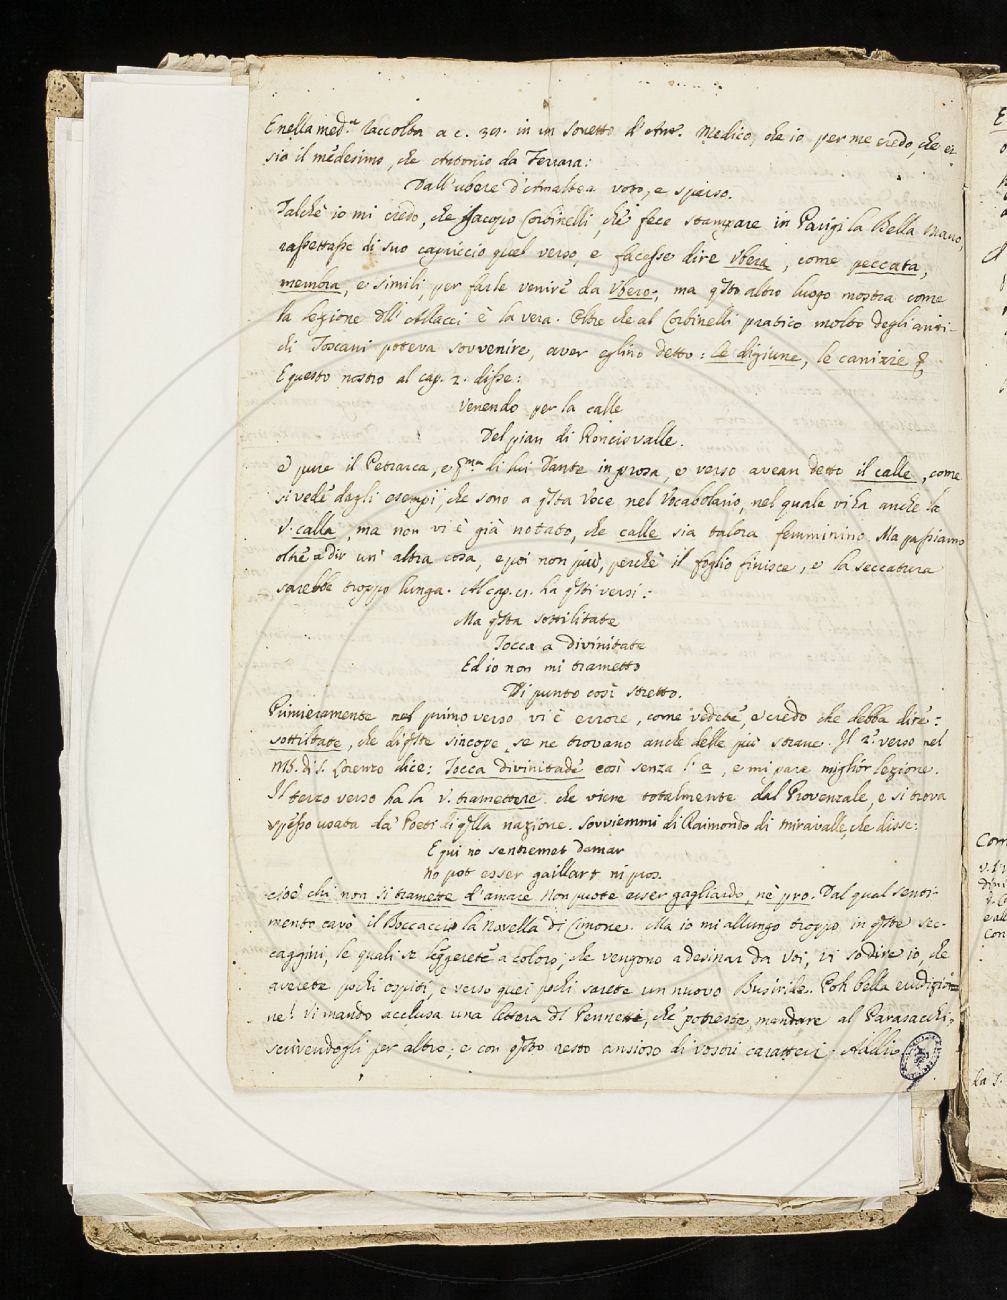 E nella med.ª raccolta a c. 391. in un sonetto d'Ant°. Medico, che io per me credo, che ei
sia il medesimo, che Antonio da Ferrara:
Dall'ubere d'Amaltea voto, e sparso.
Talchè io mi credo, che Jacopo Corbinelli, che fece stampare in Parigi la Bella Mano,
rassettasse di suo capriccio quel verso, e facesse dire ubera, come peccata,
membra, e simili, per farle venire da Ubero; ma qsto altro luogo mostra come
la lezione dll'Allacci è la vera. Oltre che al Corbinelli pratico molto degli anti-
chi Toscani poteva sovvenire, aver eglino detto: le digiune, le canizie &
E questo nostro al cap. 2. disse:
Venendo per la calle
Del pian di Roncisvalle.
e pure il Petrarca, e pma di lui Dante in prosa, e verso avean detto il calle, come
si vede dagli esempi, che sono a qsta voce nel Vocabolario, nel quale vi ha anche la
V. calla, ma non vi è già notato, che calle sia talora femminino. Ma passiamo
oltre a dir un'altra cosa, e poi non più, perchè il foglio finisce, e la seccatura
sarebbe troppo lunga. Al cap. ha qsti versi:
Ma qsta sottilitate
Tocca a divinitate
Ed io non mi trametto
Di punto così stretto.
Primieramente nel primo verso vi è errore, come vedete, e credo che debba dire:
sottiltate, che di qste sincope se ne trovano anche delle più strane. Il 2.° verso nel
MS. di S. Lorenzo dice: Tocca divinitade così senza l'a, e mi pare miglior lezione.
Il terzo verso ha la v. tramettere che viene totalmente dal Provenzale, e si trova
spesso usata da' Poeti di qlla nazione. Sovviemmi di Raimondo di Miravalle, che disse:
E qui no sentremet damar
no pot esser gaillart ni pros.
cioè chi non si tramette d'amare non puote esser gagliardo, nè pro. Dal qual senti-
mento cavò il Boccaccio la Novella di Cimone. Ma io mi allungo troppo in qste sec-
caggini, le quali se leggerete a coloro, che vengono a desinar da voi, vi so dire io, che
averete pochi ospiti, e verso quei pochi sarete un nuovo Busiride. Poh bella erudizio-
ne! Vi mando acclusa una lettera dl Pennetti, che potreste mandare al Parasacchi,
scrivendogli per altro; e con qsto resto ansioso di vostri caratteri. Addio